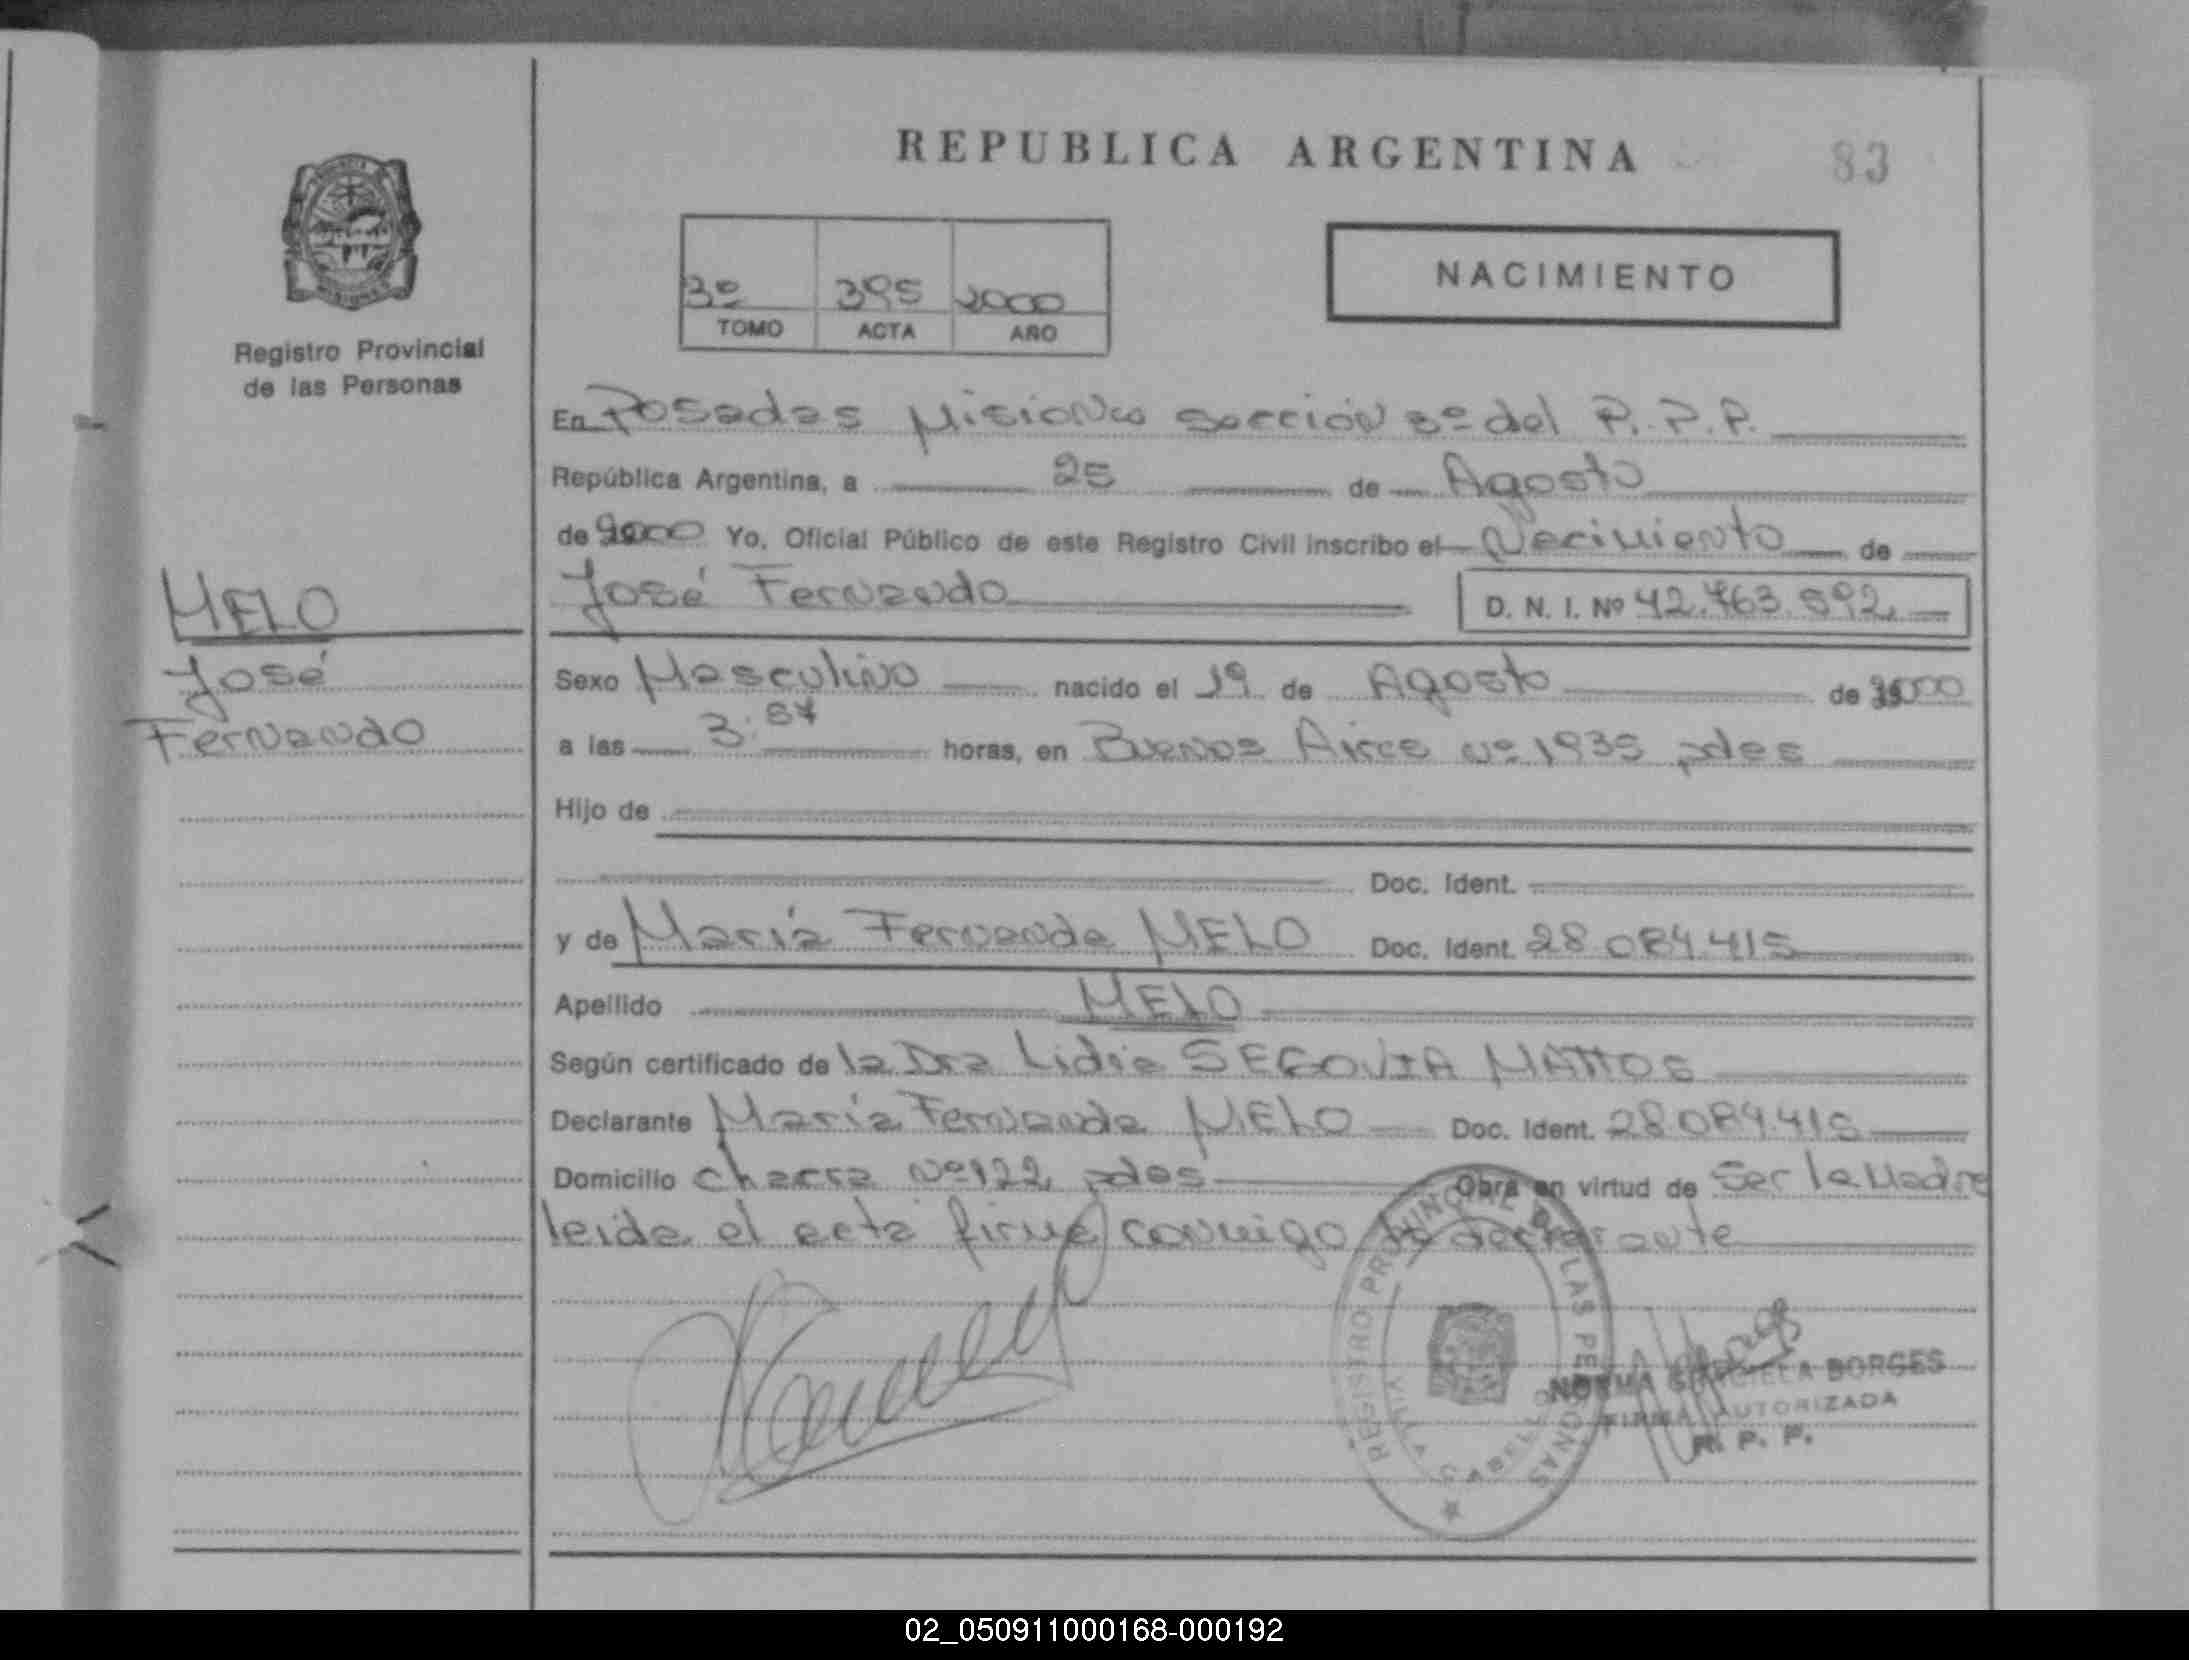 REPUBLICA ARGENTINA
83
Registro Provincial
de las Personas
3º 395 2000
TOMO ACTA AÑO
NACIMIENTO
En Posadas Misiones sección 3º del R.P.P.
República Argentina, a 25 de Agosto
de 2000 Yo, Oficial Público de este Registro Civil inscribo el Nacimiento de
José Fernando D. N. I. Nº 42.763.592
MELO
José
Fernando
Sexo Masculino nacido el 19 de Agosto de 2000
a las 3:57 horas, en Buenos Aires nº 1935 pdas
Hijo de
Doc. Ident.
y de María Fernanda MELO Doc. Ident. 28.084.415
Apellido MELO
Según certificado de la Dra Lidia SEGOVIA MATTOS
Declarante María Fernanda MELO Doc. Ident. 28.084.415
Domicilio chacra nº 122 pdas Obra en virtud de Ser la Madre
leida el acta firma conmigo la declarante
REGISTRO PROVINCIAL DE LAS PERSONAS
NORMA GRACIELA BORGES
FIRMA AUTORIZADA
R. P. P.
02_050911000168-000192